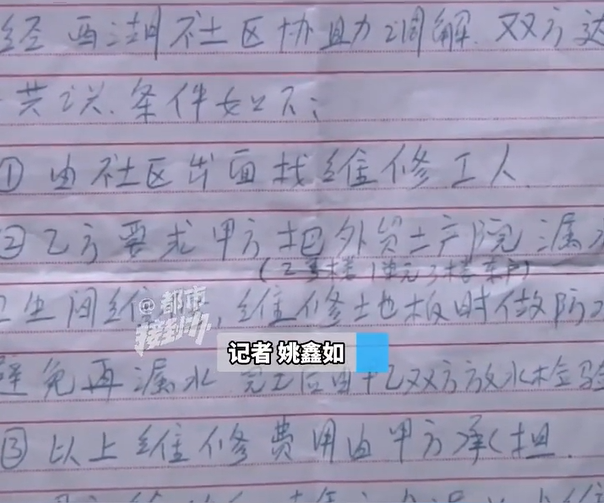 经西湖社区协助调解.双方达
共议.条件如下:
①由社区出面找维修工人.
②乙方要求甲方把外贸土产院漏水
(2号楼1单元3楼东户)
卫生间维修,维修地板时做防水
避免再漏水 完工后由甲乙双方放水检验
③以上维修费用由甲方承担.
@都市报道
记者 姚鑫如